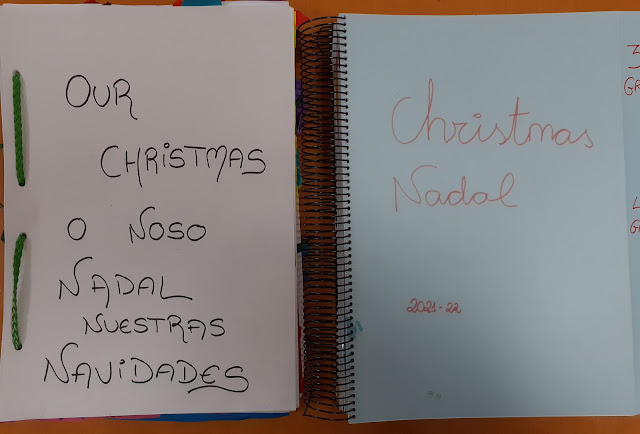 OUR
CHRISTMAS
O NOSO
NADAL
NUESTRAS
NAVIDADES
Christmas
Nadal
2021-22